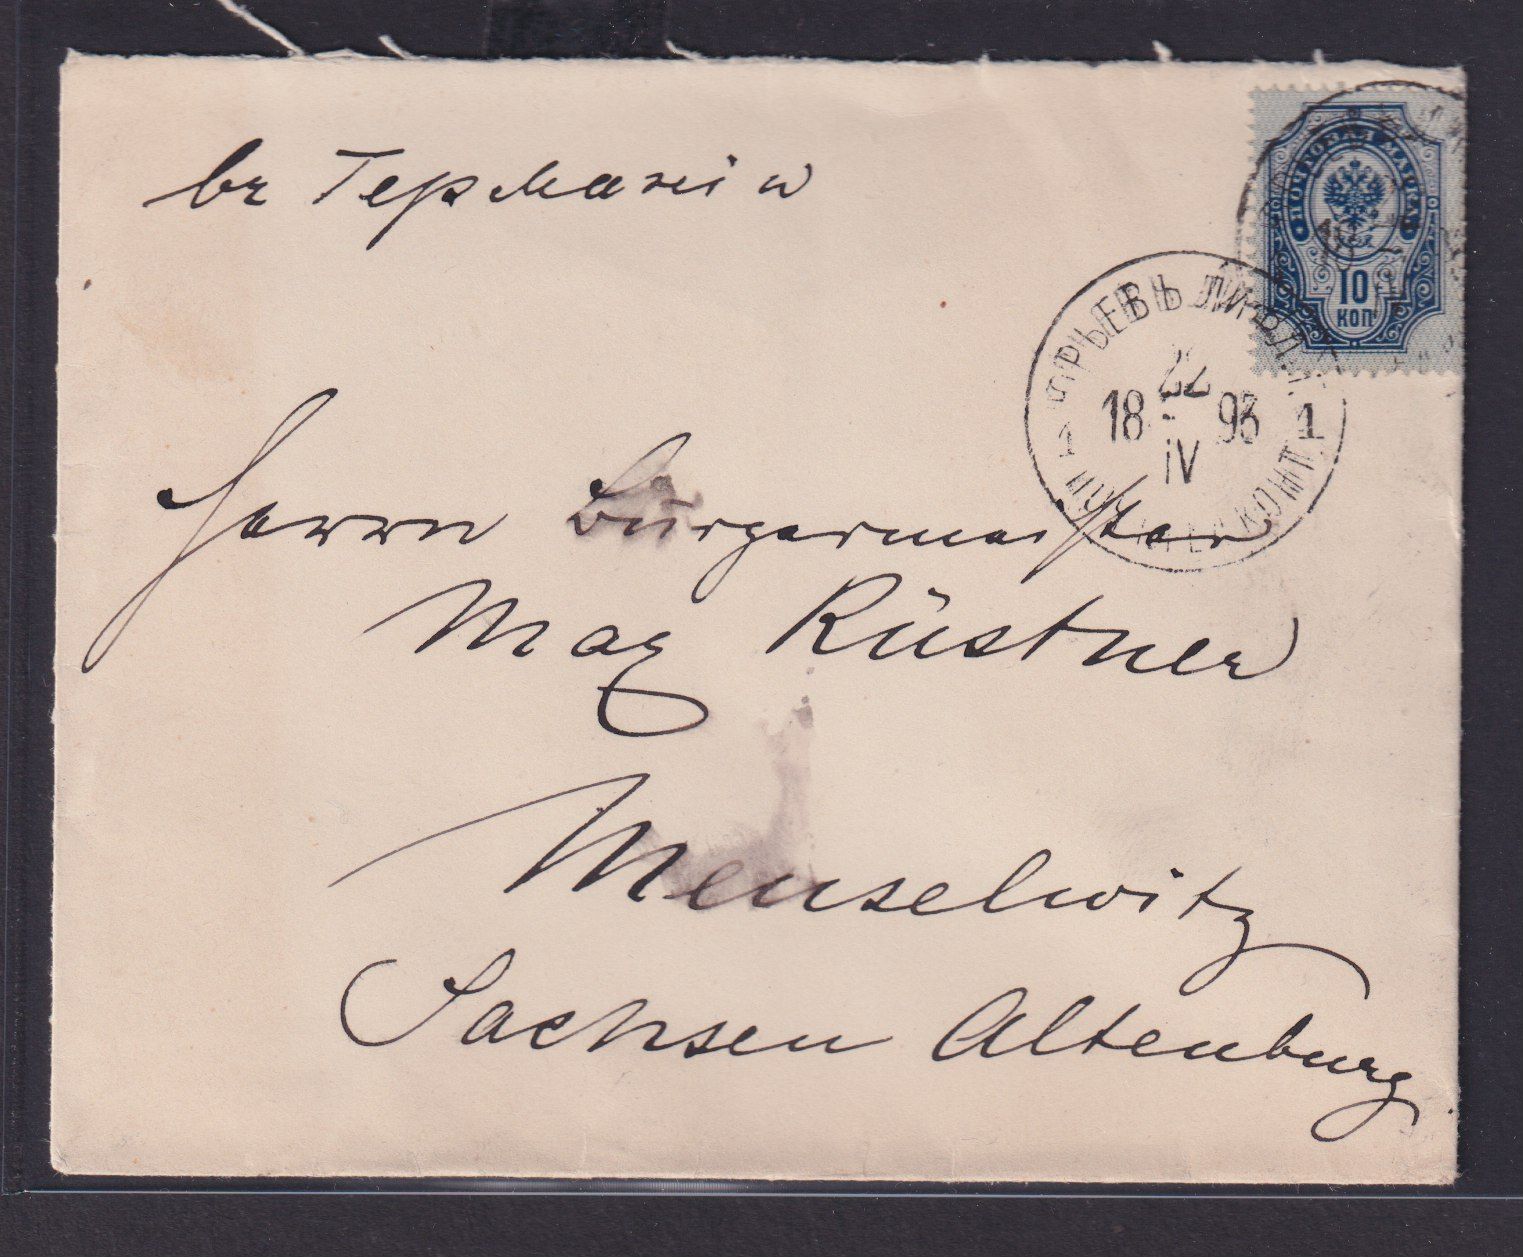 въ Германiи
ПОЧТОВАЯ МАРКА
10
КОП
ЮРЬЕВЪ ЛИФЛ.
22
18 93
IV
1 1
ПОЧ. ТЕЛ. КОНТ.
Herrn Bürgermeister
Max Rüstner
Menselwitz
Sachsen Altenburg